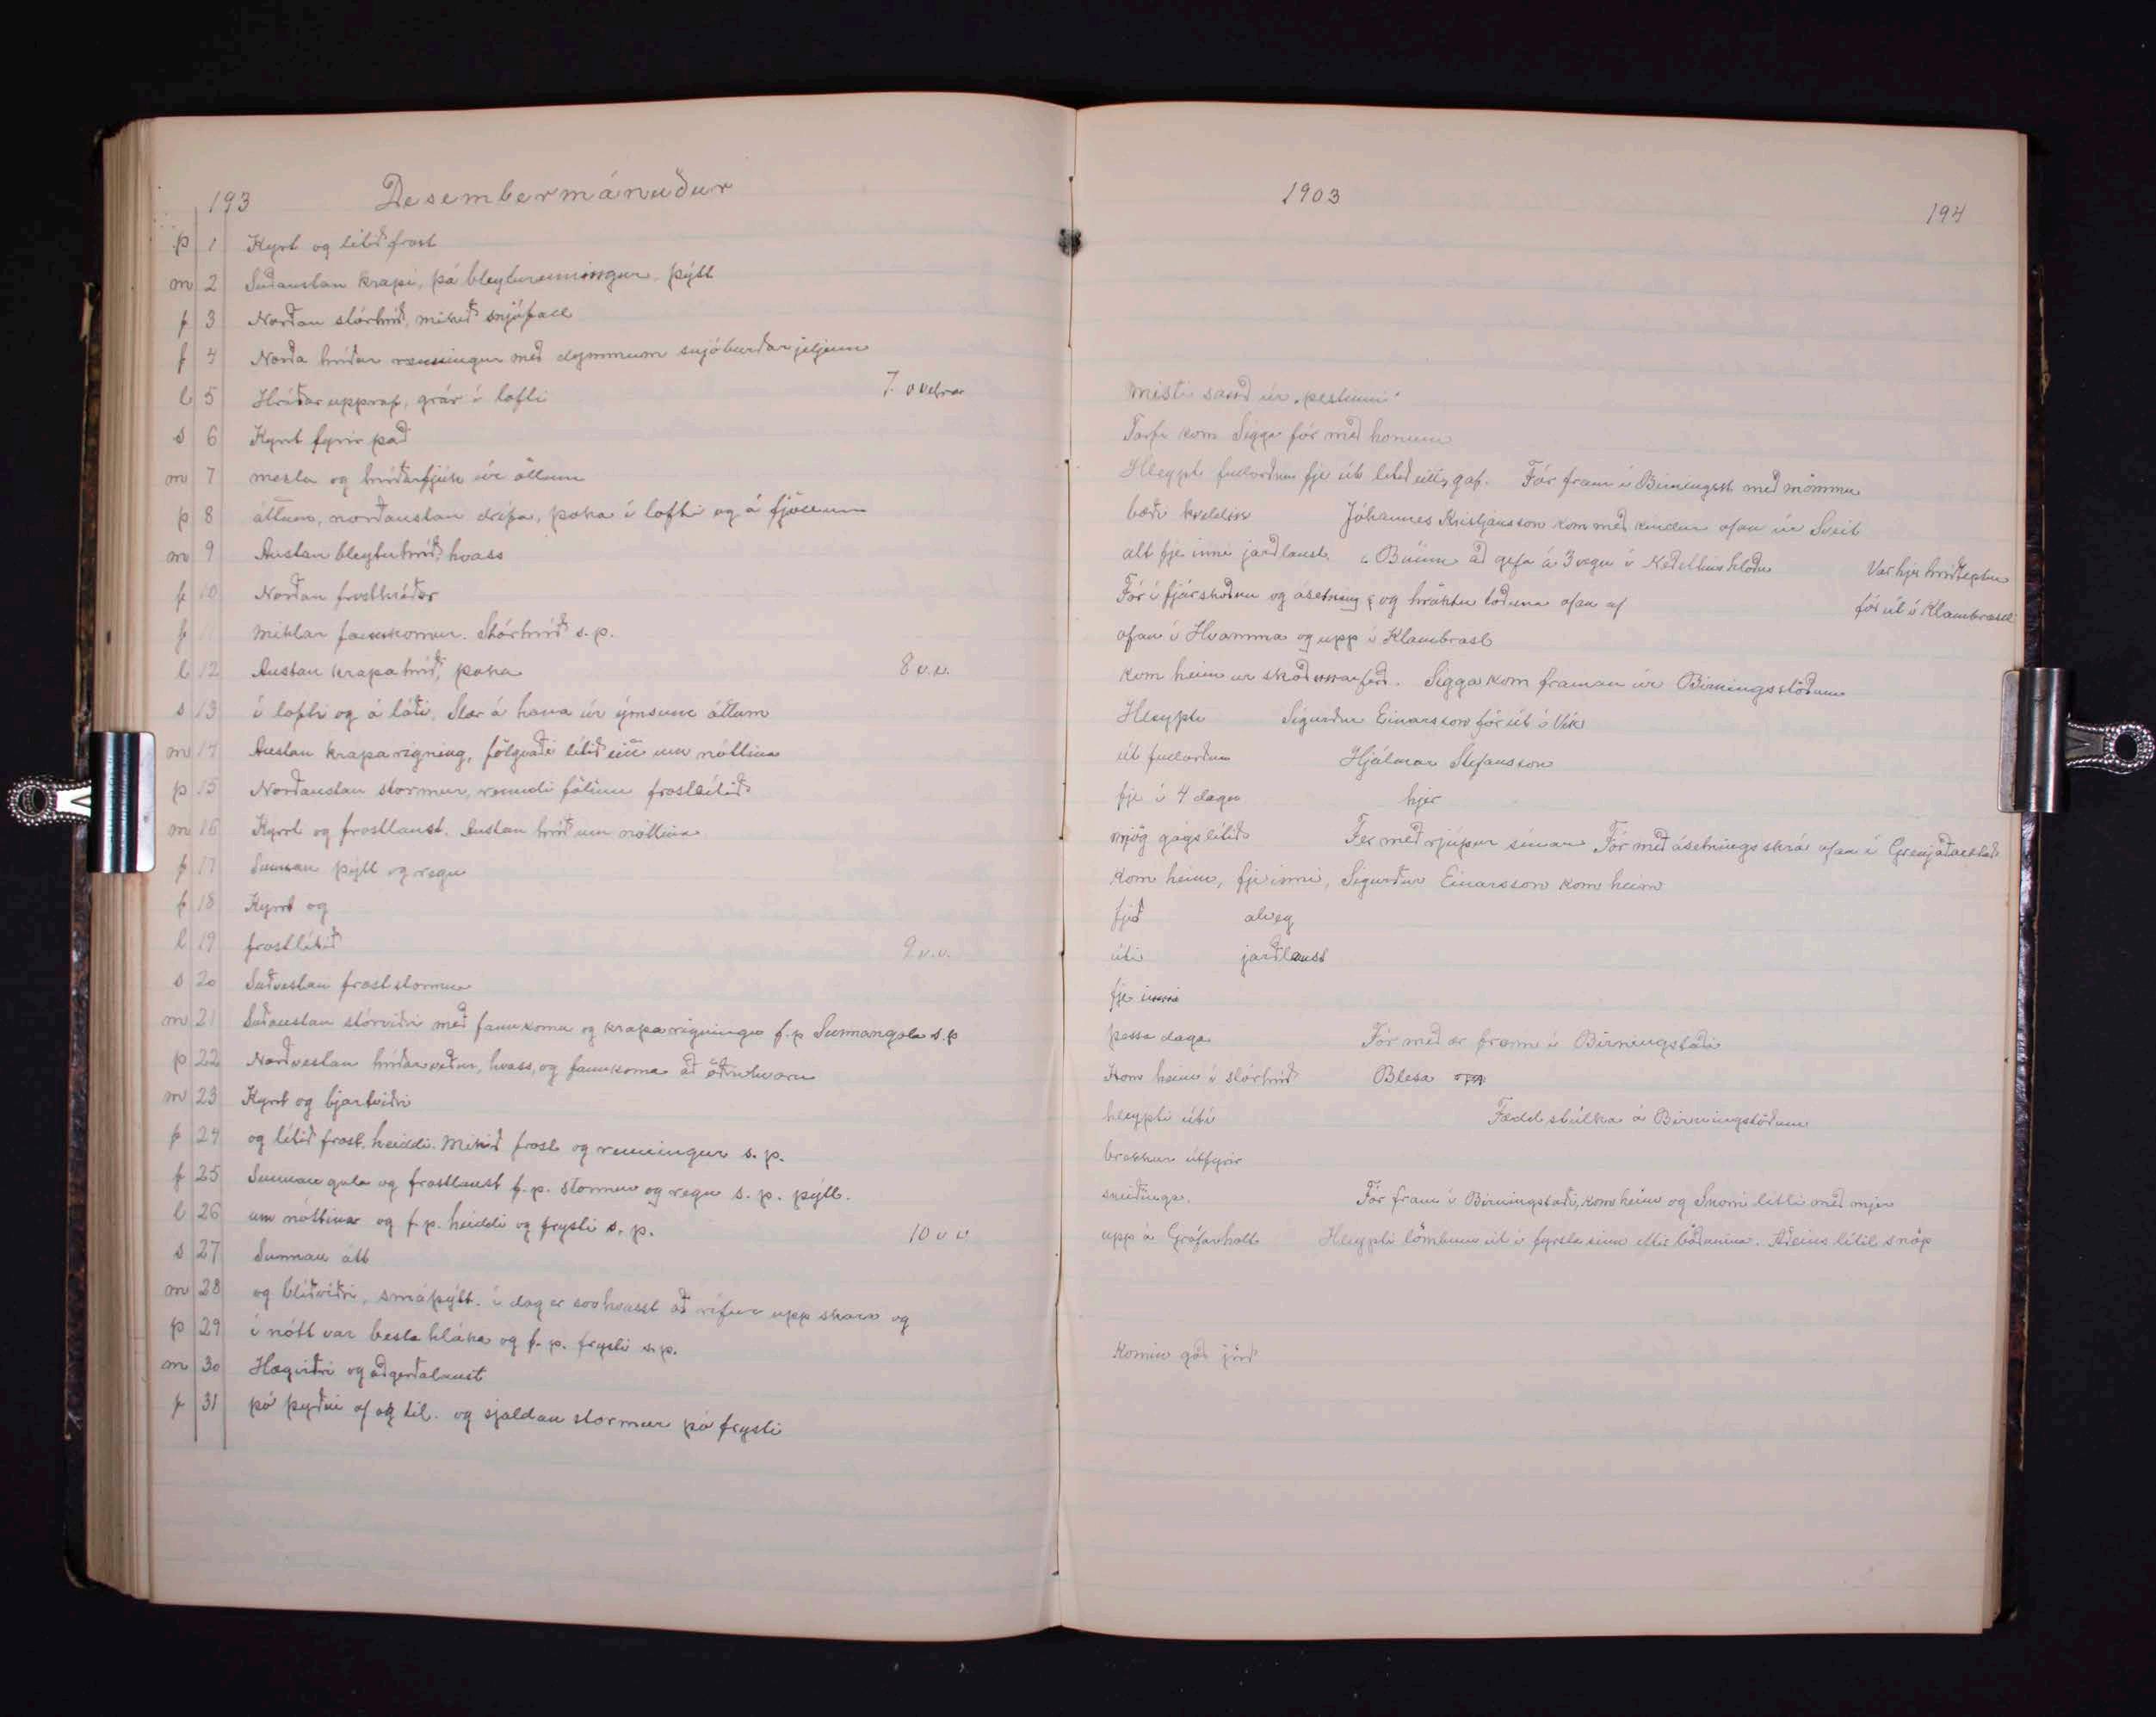 193 Desembermánuður
þ 1 Kyrt og lítið frost
m 2 Suðaustan krapi, þá bleyturenningur þýtt
f 3 Norðan stórhríð, mikið snjófall
f 4 Norða hríðar renningur með dymmum snjóburðarjeljum
l 5 Hríðar upprof, grár í lofti 7. v vetrar
s 6 Kyrt fyrir það
m 7 mesta og hríðarfjúk úr öllum
þ 8 áttum, norðaustan drífa, þoka í lofti og á fjöllum
m 9 Austan bleytuhríð, hvass
f 10 Norðan frosthríðar
f 11 Miklar fannkomur. Stórhríð s.p.
l 12 Austan krapahríð, þoka 8 v.v.
s 13 í lofti og á láði, Slær á hana úr ýmsum áttum
m 14 Austan kraparigning, fölgvaði lítið eitt um nóttina
þ 15 Norðaustan stormur, renndi fölinu frostlítið
m 16 Kyrrt og frostlaust. Austan hríð um nóttina
f 17 Sunnan þýtt og regn
f 18 Kyrrt og
l 19 frostlítið 9 v.v.
s 20 Suðvestan froststormur
m 21 Suðaustan stórviðri með fannkomu og kraparigningu f.p Sunnangola s.p
þ 22 Norðvestan hríðarveður, hvass, og fannkoma að öðruhvoru
m 23 Kyrt og bjartviðri
f 24 og lítið frost, heiddi. Mikið frost og renningur s.p.
f 25 Sunnan gola og frostlaust f.p. stormur og regn s.p. þýtt.
l 26 um nóttina og f.p. heiddi og frysti s.p. 10 v v
s 27 Sunnan átt
m 28 og blíðviðri, smáþýtt. í dag er svo hvasst að rífur upp skara og
þ 29 í nótt var besta hláka og f.p. frysti s.p.
m 30 Hægviðri og aðgerðalaust
f 31 þó þyðni af og til. og sjaldan stormur þó frysti
1903
194
misti sauð úr "pestinni"
Torfi kom Sigga fór með honum
Hleypti fullorðnu fje út lítið eitt, gaf. Fór fram í Birningsst með mömmu
bæði kveldin Jóhannes Kristjánsson kom með kindur ofan úr Sveit
alt fje inni jarðlaust. Búinn að gefa á 3 vegu í Var hjer hríðteptur
Fór í fjárskoðun og ásetning og töðuna ofan af fór út í Klambrasel
ofan í Hvamma og upp í Klambrasel
kom heim ur skoðunarferð. Sigga kom framan úr Birningsstöðum
Hleypti Sigurður Einarsson fór út á Vík
út fullorðnu Hjálmar Stefánsson
fje í 4 daga hjer
mjög gagslítið Fer með rjúpur sínar Fór með ásetningsskrá ofan í Grenjaðarstað
kom heim, fje inni, Sigurður Einarsson kom heim
fjeð alveg
úti jarðlaust
fje inni
þessa daga Fór með ær fram í Birningstaði
Kom heim í stórhríð Blesa
hleypti úti Fædd stúlka á Birningstöðum
brekkur útfyrir
sniðinga. Fór fram í Birningstaði, kom heim og Snorri litli með mjer
upp á Grófarholt Hleypti lömbum út í fyrsta sinn eftir böðunina. Aðeins lítil snöp
Komin góð jörð